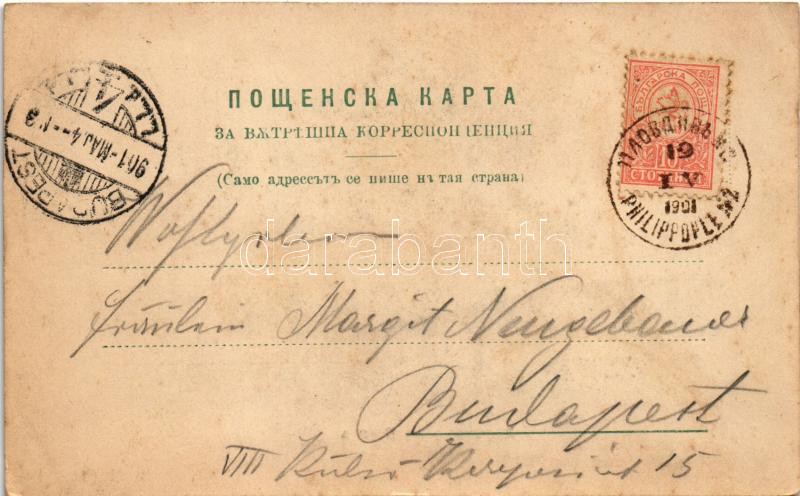 ПОЩЕНСКА КАРТА
ЗА ВѪТРѢШНА КОРРЕСПОНДЕНЦИЯ
(Само адрессътъ се пише на тая страна)
БЪЛГАРСКА ПОЩА
СТОТИНКИ
ПЛОВДИВЪ
19
IV
1901
PHILIPPOPLE №2
BUDAPEST
901-MAJ 4
darabanth
Fräulein Margit Neugebauer
Budapest
VIII Külső 15